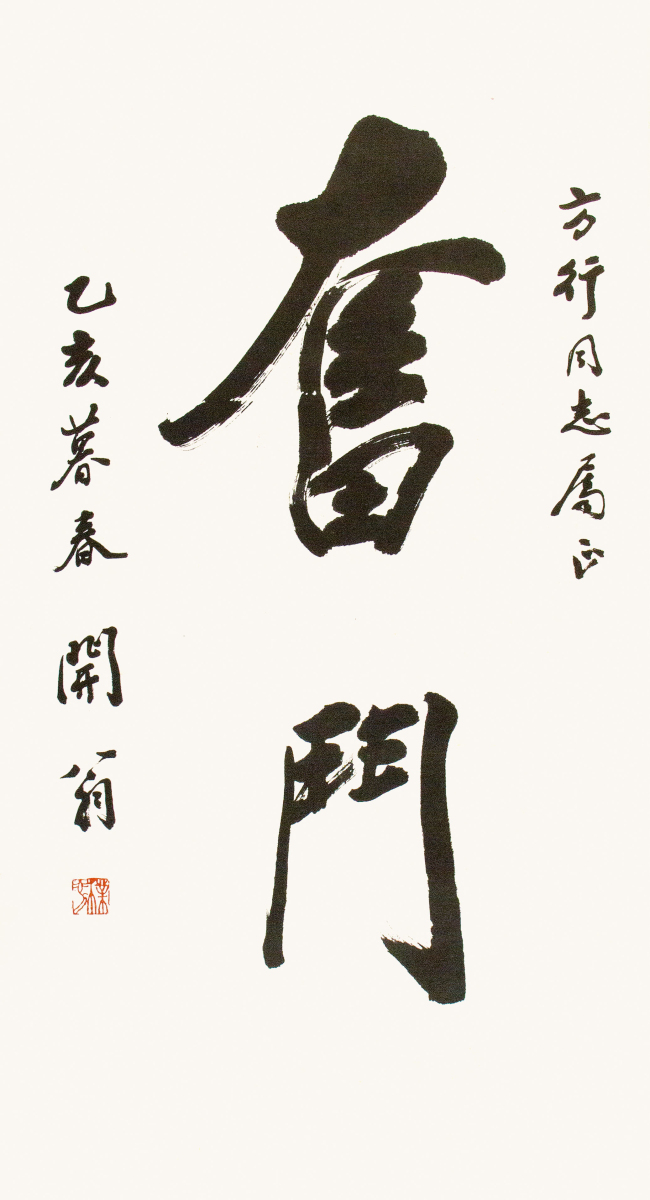 方行同志屬正
奮鬥
乙亥暮春 開翁